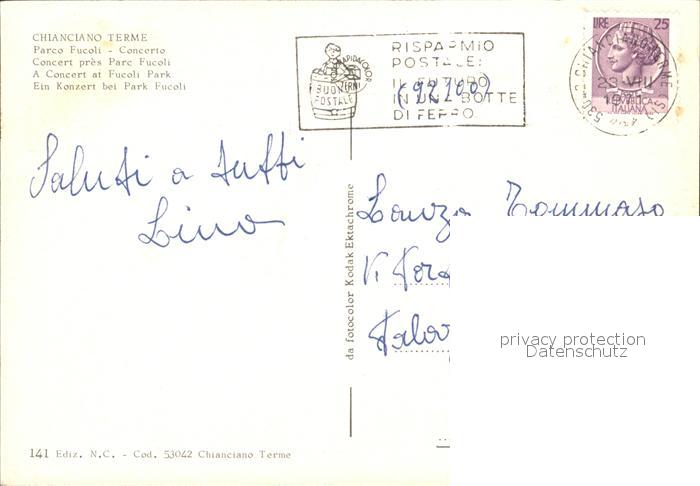 CHIANCIANO TERME
Parco Fucoli - Concerto
Concert près Parc Fucoli
A Concert at Fucoli Park
Ein Konzert bei Park Fucoli
BUONI
POSTALE
RISPARMIO
POSTALE:
IL FUTURO
IN UNA BOTTE
DI FERRO
(92100)
LIRE 25
REPUBBLICA
ITALIANA
53042 CHIANCIANO TERME (SI)
23 VIII
Saluti a tutti
Lino
da fotocolor Kodak Ektachrome
Lanza Tommaso
V.
privacy protection
Datenschutz
141 Ediz. N.C. - Cod. 53042 Chianciano Terme